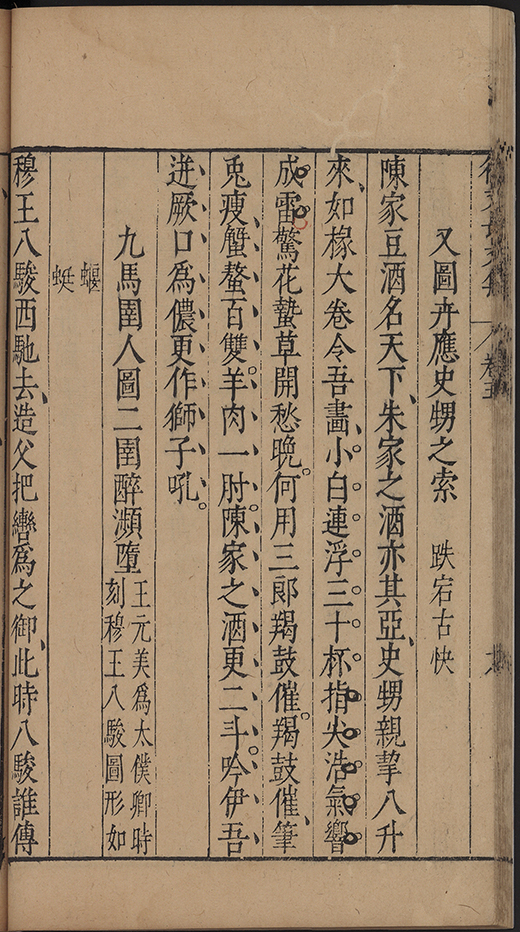 又圖卉應史甥之索　跌宕古快
陳家豆酒名天下、朱家之酒亦其亞、史甥親挈八升
來、如椽大卷令吾畵、小白連浮三十杯指尖浩氣響
成雷驚花蟄草開愁晚。何用三郎羯鼓催。羯鼓催、筆
兎瘦、蟹螯百雙。羊肉一肘。陳家之酒更二斗。吟伊吾、
迸厥口爲儂更作獅子吼。
九馬圉人圖二圉醉瀕墮
王元美爲太僕卿時
刻穆王八駿圖形如
蝘
蜓
穆王八駿西馳去、造父把轡爲之御、此時八駿誰傳